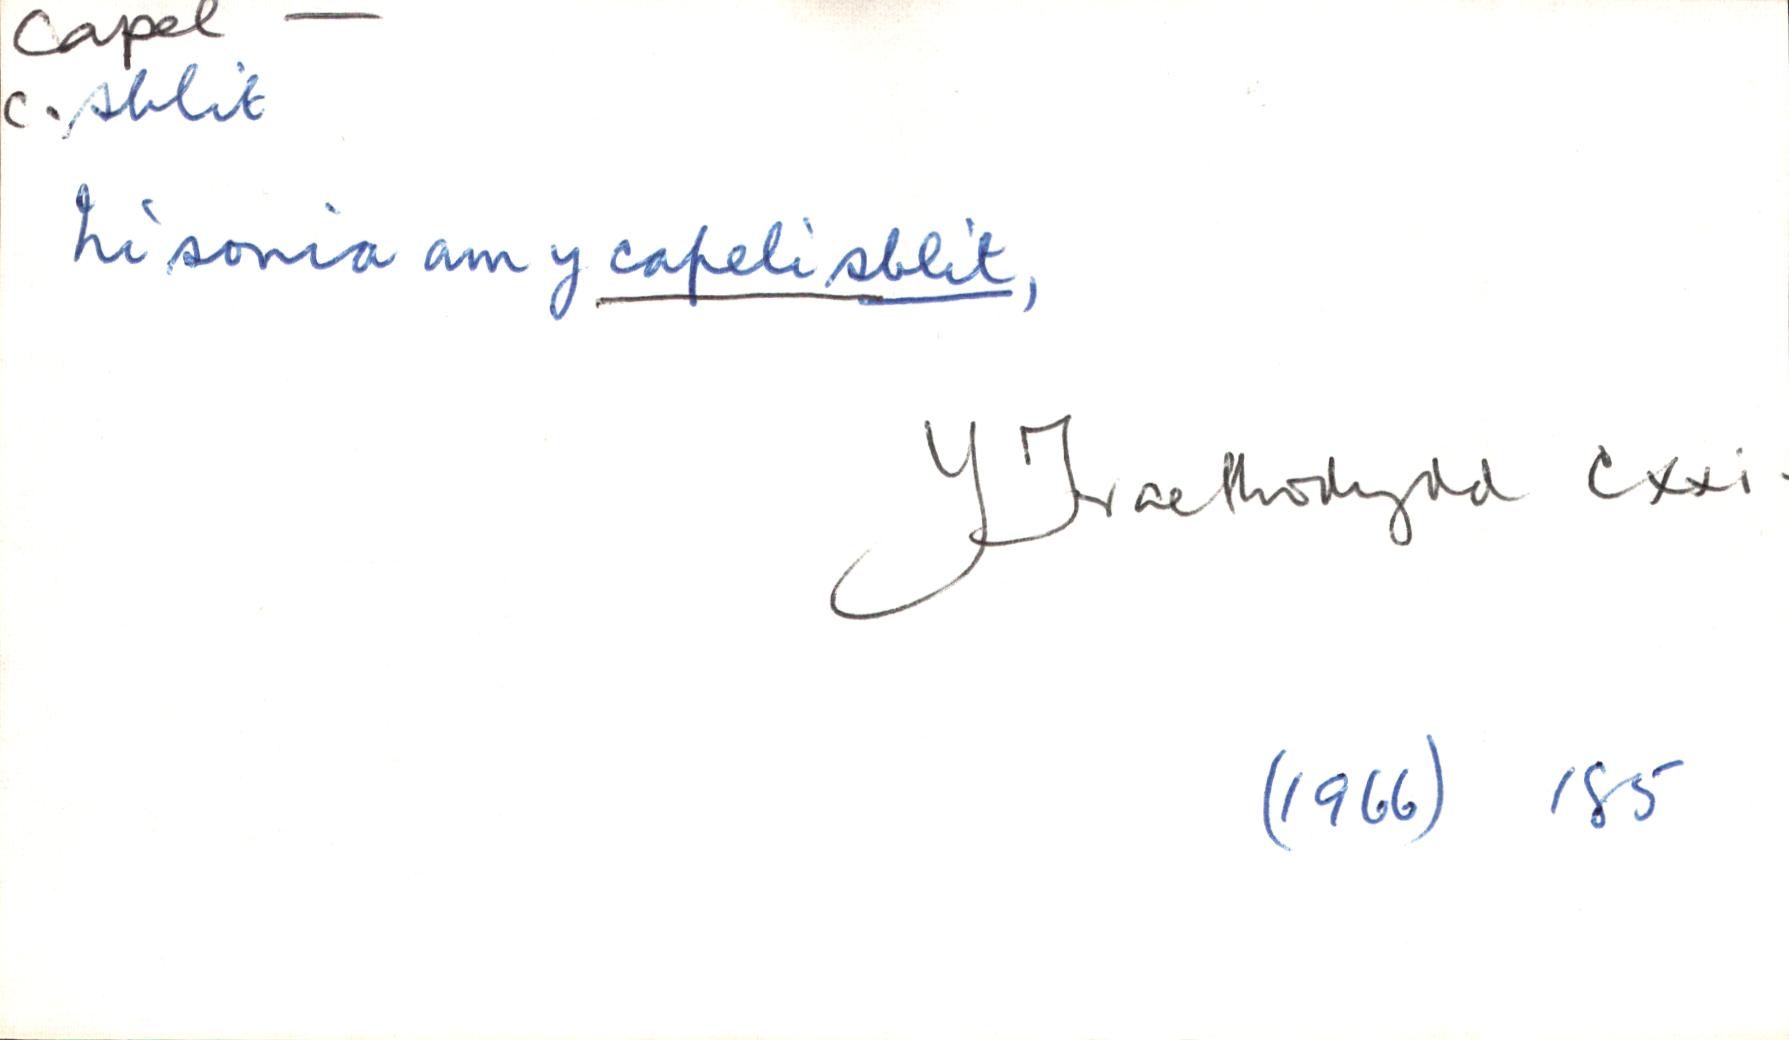 Capel —
c. sblit
hi sonia am y capeli sblit,
Y Traethodydd cxxi.
(1966) 185